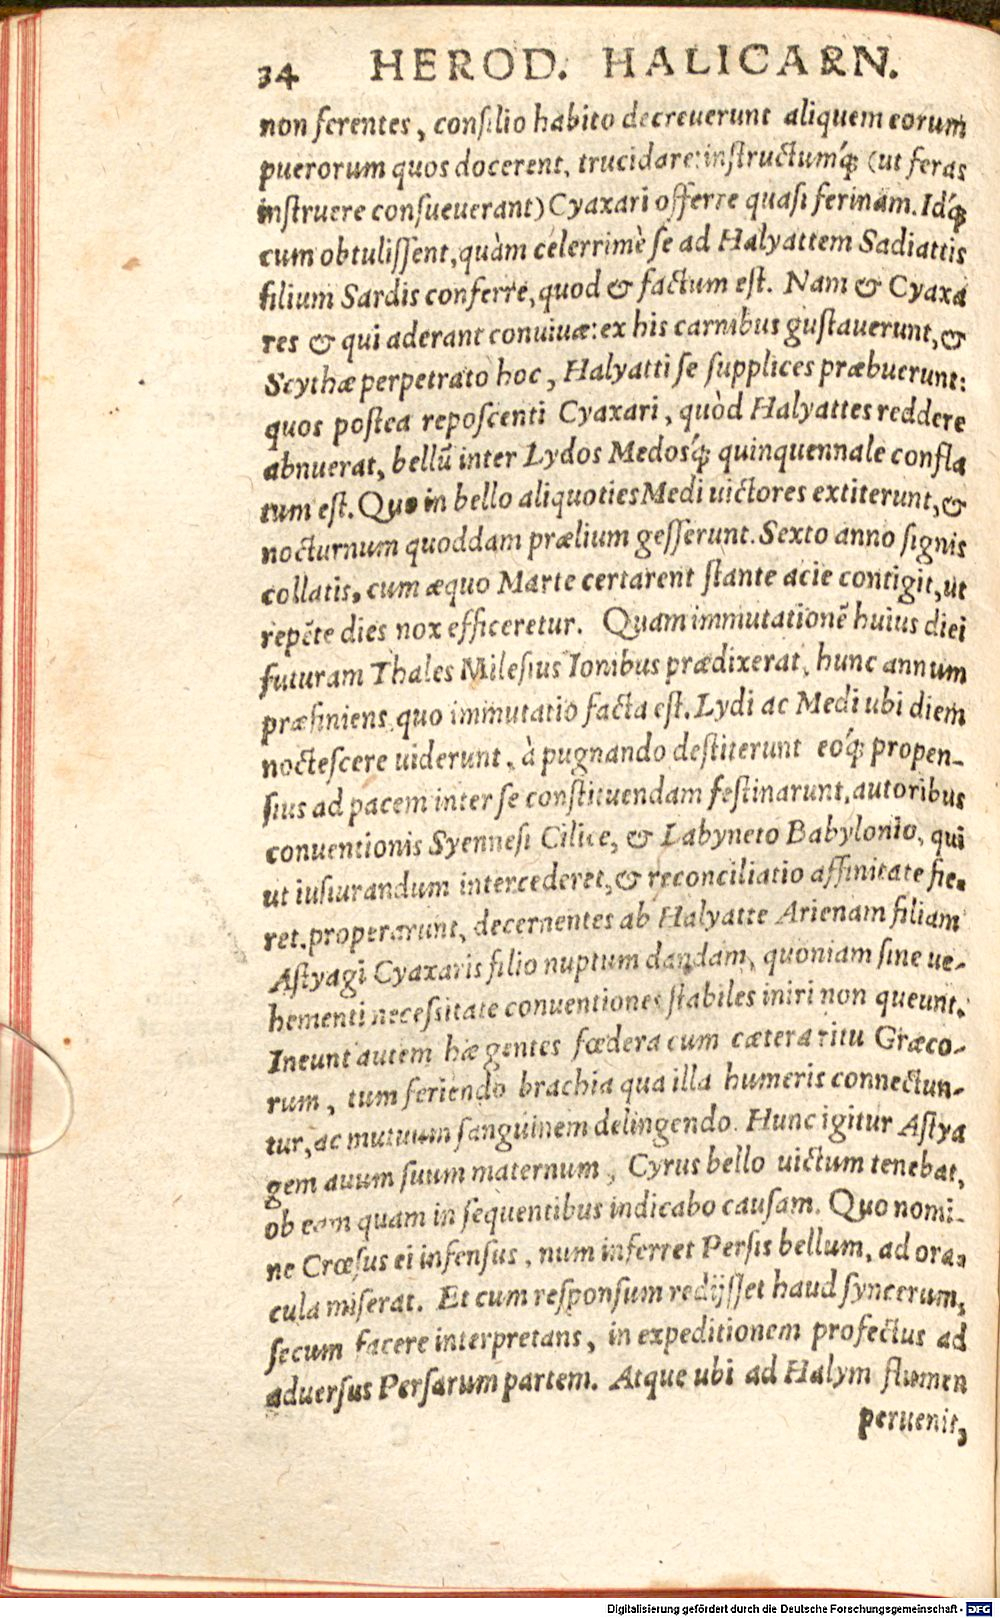 34 HEROD. HALICARN.
non ferentes, consilio habito decreuerunt aliquem eorum
puerorum quos docerent, trucidare: instructumq́; (ut feras
instruere consueuerant) Cyaxari offerre quasi ferinam. Idq́;
cum obtulissent, quàm celerrimè se ad Halyattem Sadiattis
filium Sardis conferre, quod & factum est. Nam & Cyaxa
res & qui aderant conuiuæ: ex his carnibus gustauerunt, &
Scythæ perpetrato hoc, Halyatti se supplices præbuerunt:
quos postea reposcenti Cyaxari, quòd Halyattes reddere
abnuerat, bellũ inter Lydos Medosq́; quinquennale confla
tum est. Quo in bello aliquoties Medi uictores extiterunt, &
nocturnum quoddam prælium gesserunt. Sexto anno signis
collatis, cum æquo Marte certarent stante acie contigit, ut
repẽte dies nox efficeretur. Quam immutationẽ huius diei
futuram Thales Milesius Ionibus prædixerat, hunc annum
præfiniens, quo immutatio facta est. Lydi ac Medi ubi diem
noctescere uiderunt, à pugnando destiterunt eoq́; propen-
sius ad pacem inter se constituendam festinarunt, autoribus
conuentionis Syennesi Cilice, & Labyneto Babylonio, qui
ut iusiurandum intercederet, & reconciliatio affinitate fie-
ret, properarunt, decernentes ab Halyatte Arienam filiam
Astyagi Cyaxaris filio nuptum dandam, quoniam sine ue-
hementi necessitate conuentiones stabiles iniri non queunt.
Ineunt autem hæ gentes fœdera cum cætera ritu Græco-
rum, tum feriendo brachia qua illa humeris connectun-
tur, ac mutuum sanguinem delingendo. Hunc igitur Astya
gem auum suum maternum, Cyrus bello uictum tenebat,
ob eam quam in sequentibus indicabo causam. Quo nomi-
ne Crœsus ei infensus, num inferret Persis bellum, ad ora-
cula miserat. Et cum responsum redijsset haud syncerum,
secum facere interpretans, in expeditionem profectus ad
aduersus Persarum partem. Atque ubi ad Halym flumen
peruenit,
Digitalisierung gefördert durch die Deutsche Forschungsgemeinschaft - DFG